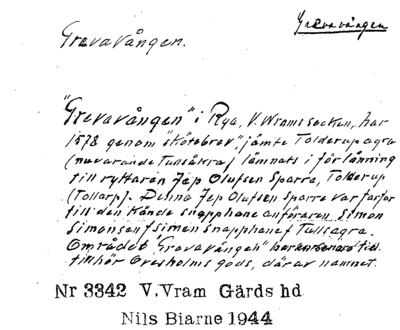 Grevavången
Grevavången.
"Grevavången" i Rya, V. Wrams socken, har
1578 genom "skötebrev" jämte Tolderup agra
(nuvarande Tullsåkra) lämnats i förlänning
till ryttaren Jep Olufsen Sparre, Tolderup
(Tollarp). Denna Jep Olufsen Sparre var farfar
till den kände snapphaneanföraren Simon
Simonsen/Simen Snapphane/ Tullsagra.
Området Grevavången" har en
tillhör Ovesholms gods, därav namnet.
Nr 3342 V.Vram Gärds hd
Nils Biarne 1944